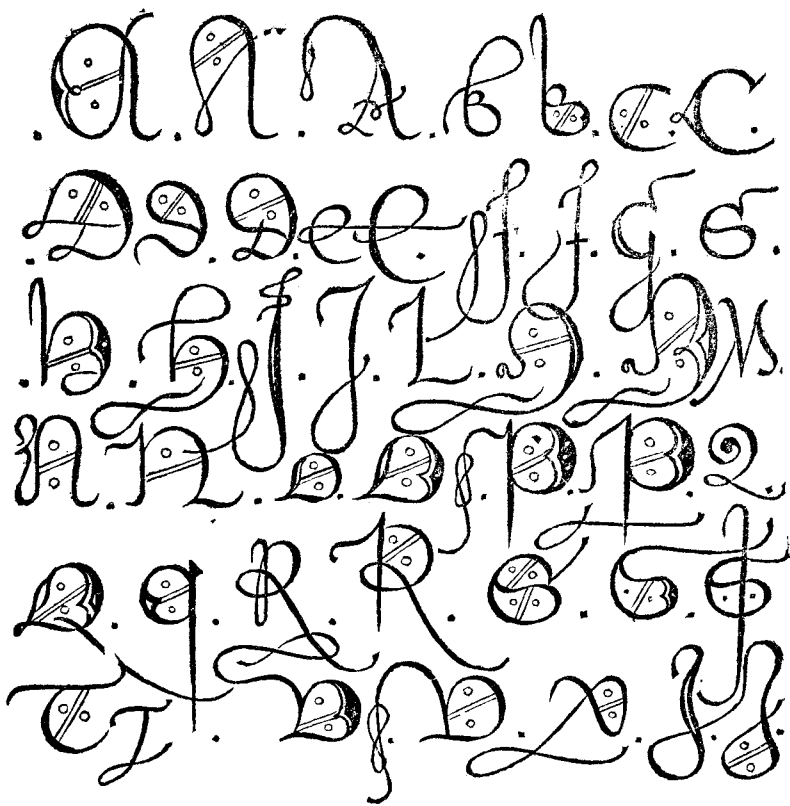 . A . A . A . b b . C . C .
. D D . D . e e . f . f . G . G .
. h . h . I . J . L . M . M M .
N . N . O . O . P . P . Q .
Q . q . R . R . S . S . S
T T . V . V . X . Y . Y .